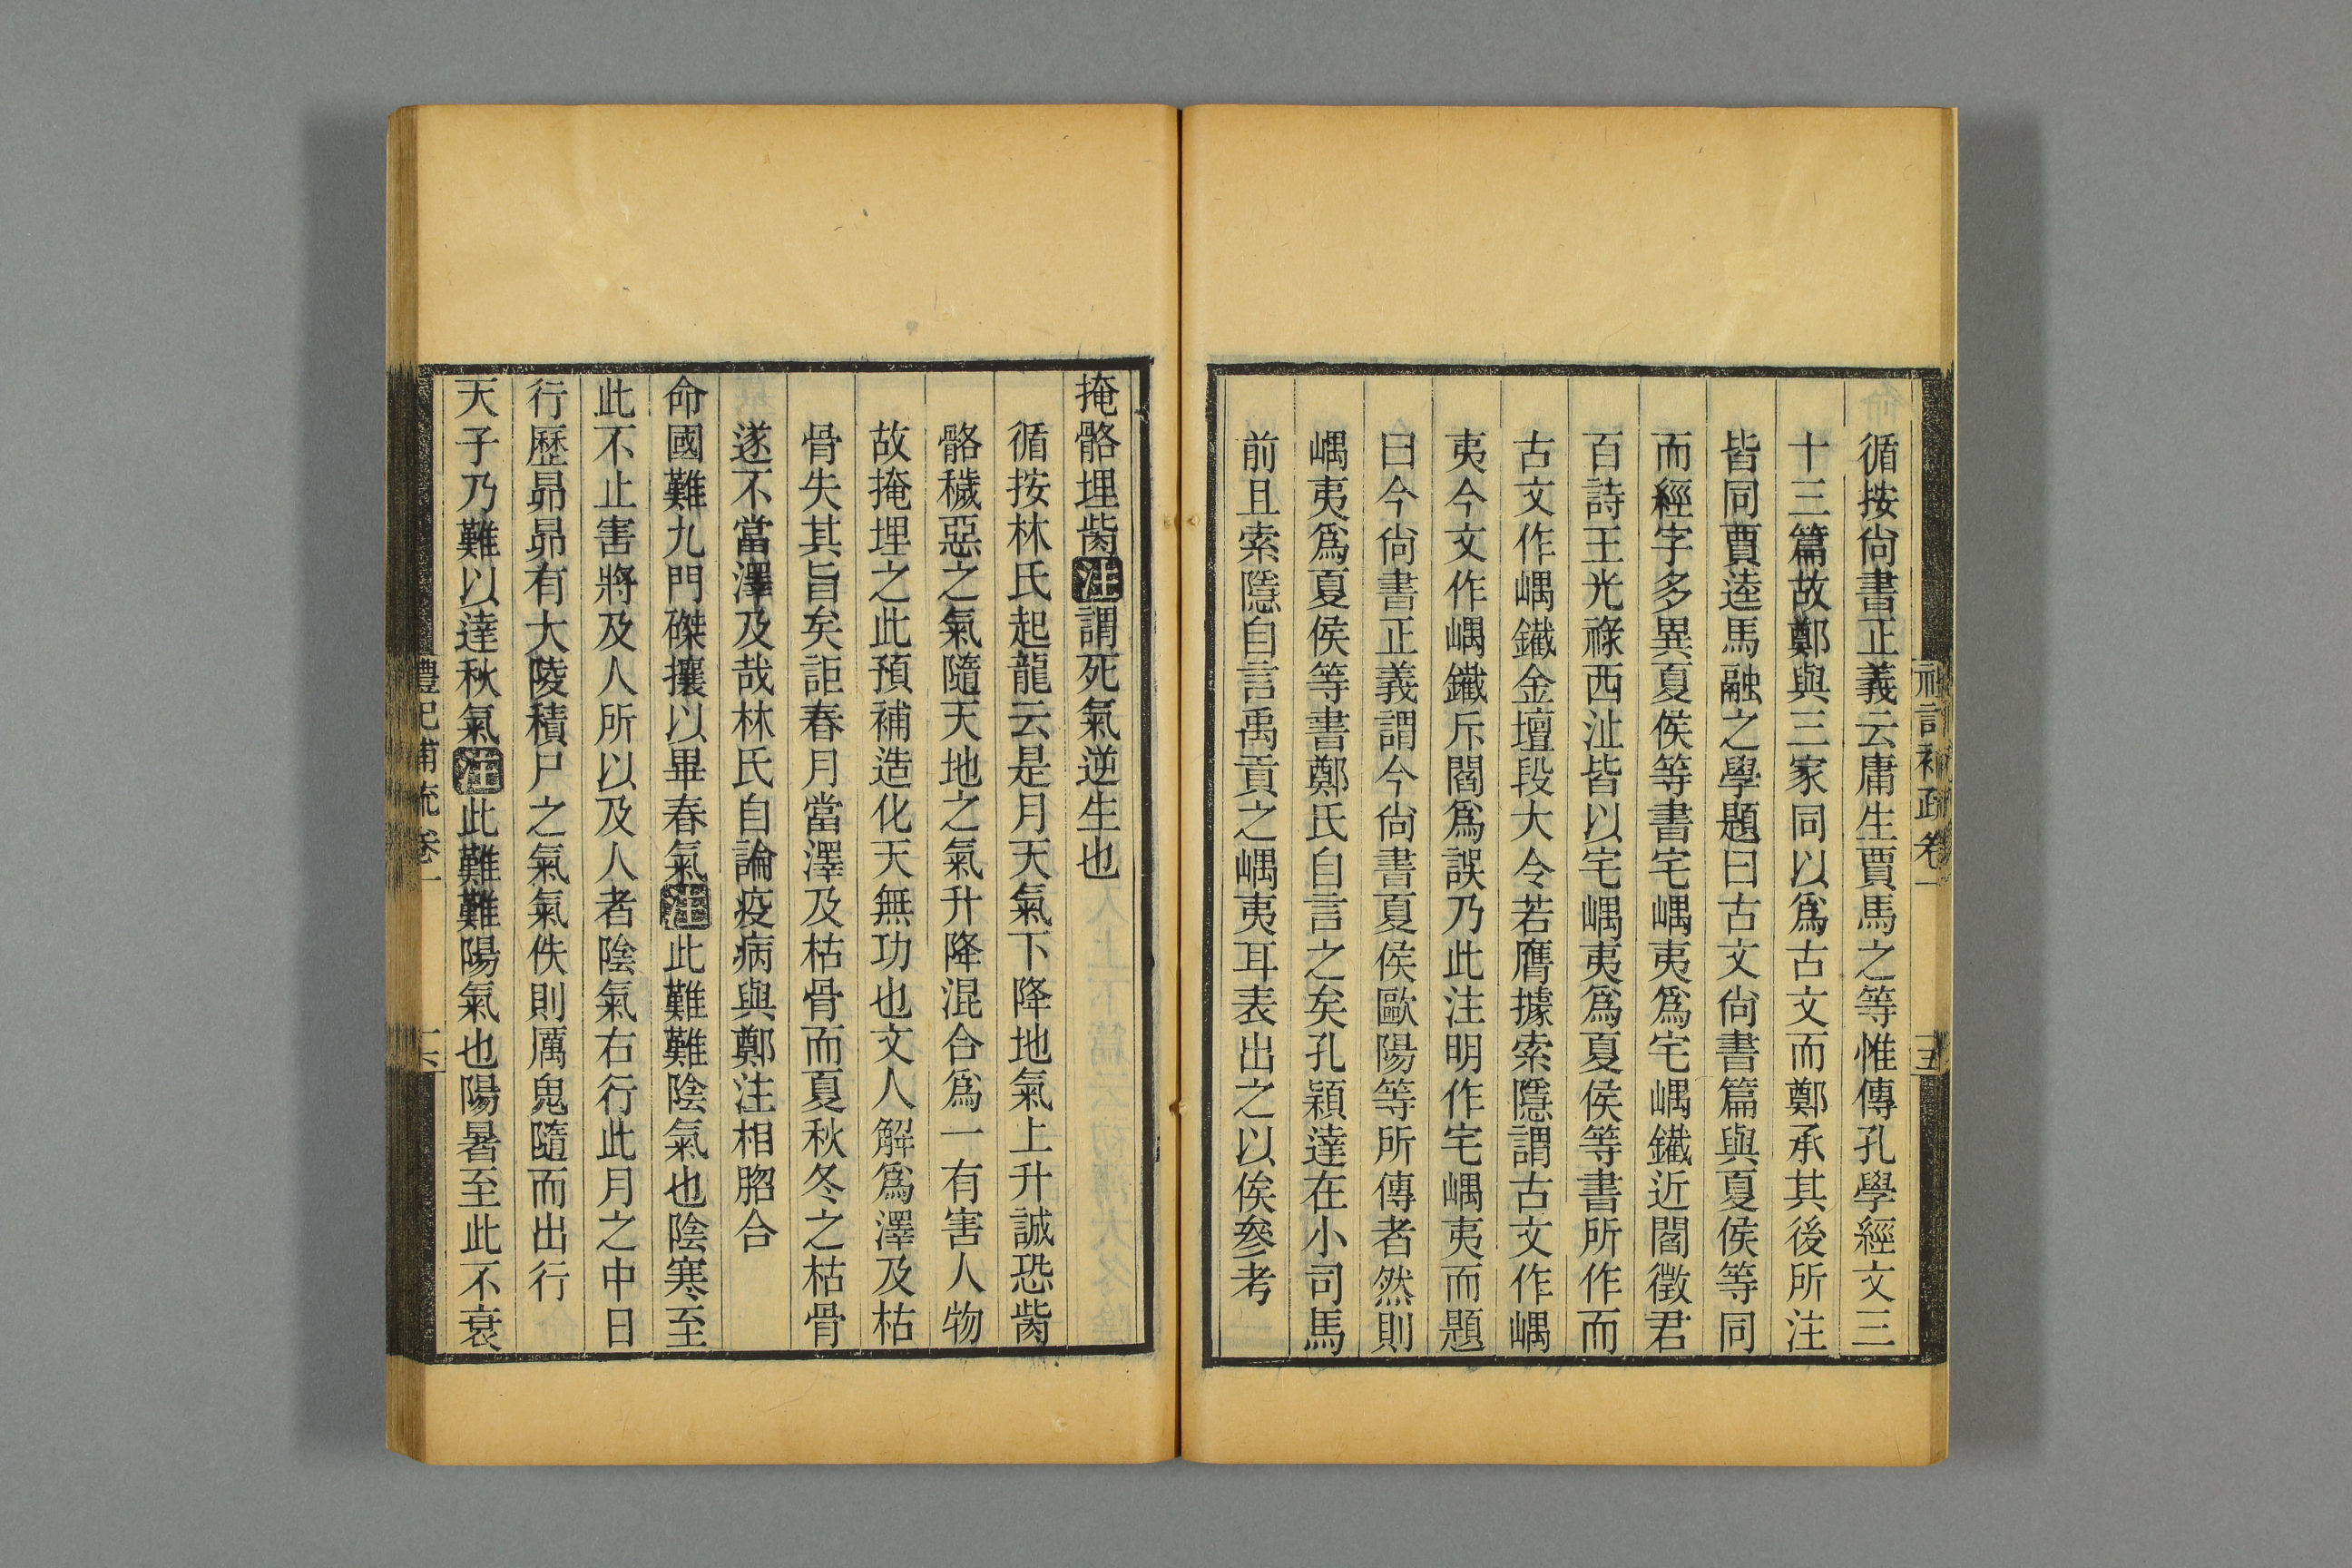 循按尙書正義云庸生賈馬之等惟傳孔學經文三
十三篇故鄭與三家同以爲古文而鄭承其後所注
皆同賈逵馬融之學題曰古文尙書篇與夏侯等同
而經字多異夏侯等書宅嵎夷爲宅嵎鐵近閻徵君
百詩王光祿西沚皆以宅嵎夷爲夏侯等書所作而
古文作嵎鐵金壇段大令若膺據索隱謂古文作嵎
夷今文作嵎鐵斥閻爲誤乃此注明作宅嵎夷而題
曰今尙書正義謂今尙書夏侯歐陽等所傳者然則
嵎夷爲夏侯等書鄭氏自言之矣孔穎達在小司馬
前且索隱自言禹貢之嵎夷耳表出之以俟參考
禮記補疏卷一
五
掩骼埋胔注謂死氣逆生也
循按林氏起龍云是月天氣下降地氣上升誠恐胔
骼穢惡之氣隨天地之氣升降混合爲一有害人物
故掩埋之此預補造化天無功也文人解爲澤及枯
骨失其旨矣詎春月當澤及枯骨而夏秋冬之枯骨
遂不當澤及哉林氏自論疫病與鄭注相脗合
命國難九門磔攘以畢春氣注此難難陰氣也陰寒至
此不止害將及人所以及人者陰氣右行此月之中日
行歷昴昴有大陵積尸之氣氣佚則厲鬼隨而出行
天子乃難以達秋氣注此難難陽氣也陽暑至此不衰
禮記補疏卷一
六